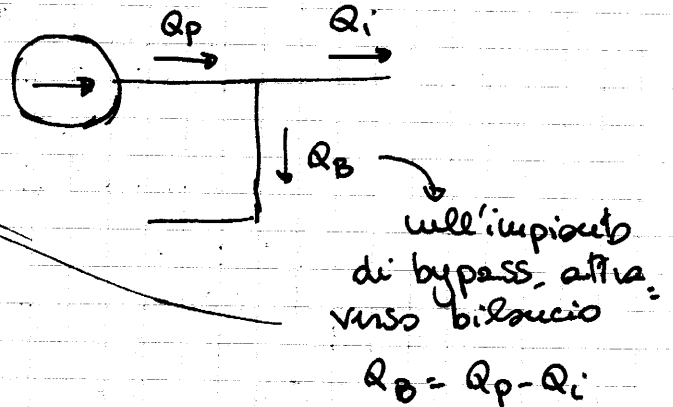 Qp Qi
QB
nell'impianto
di bypass, attra=
verso bilancio
QB = Qp - Qi